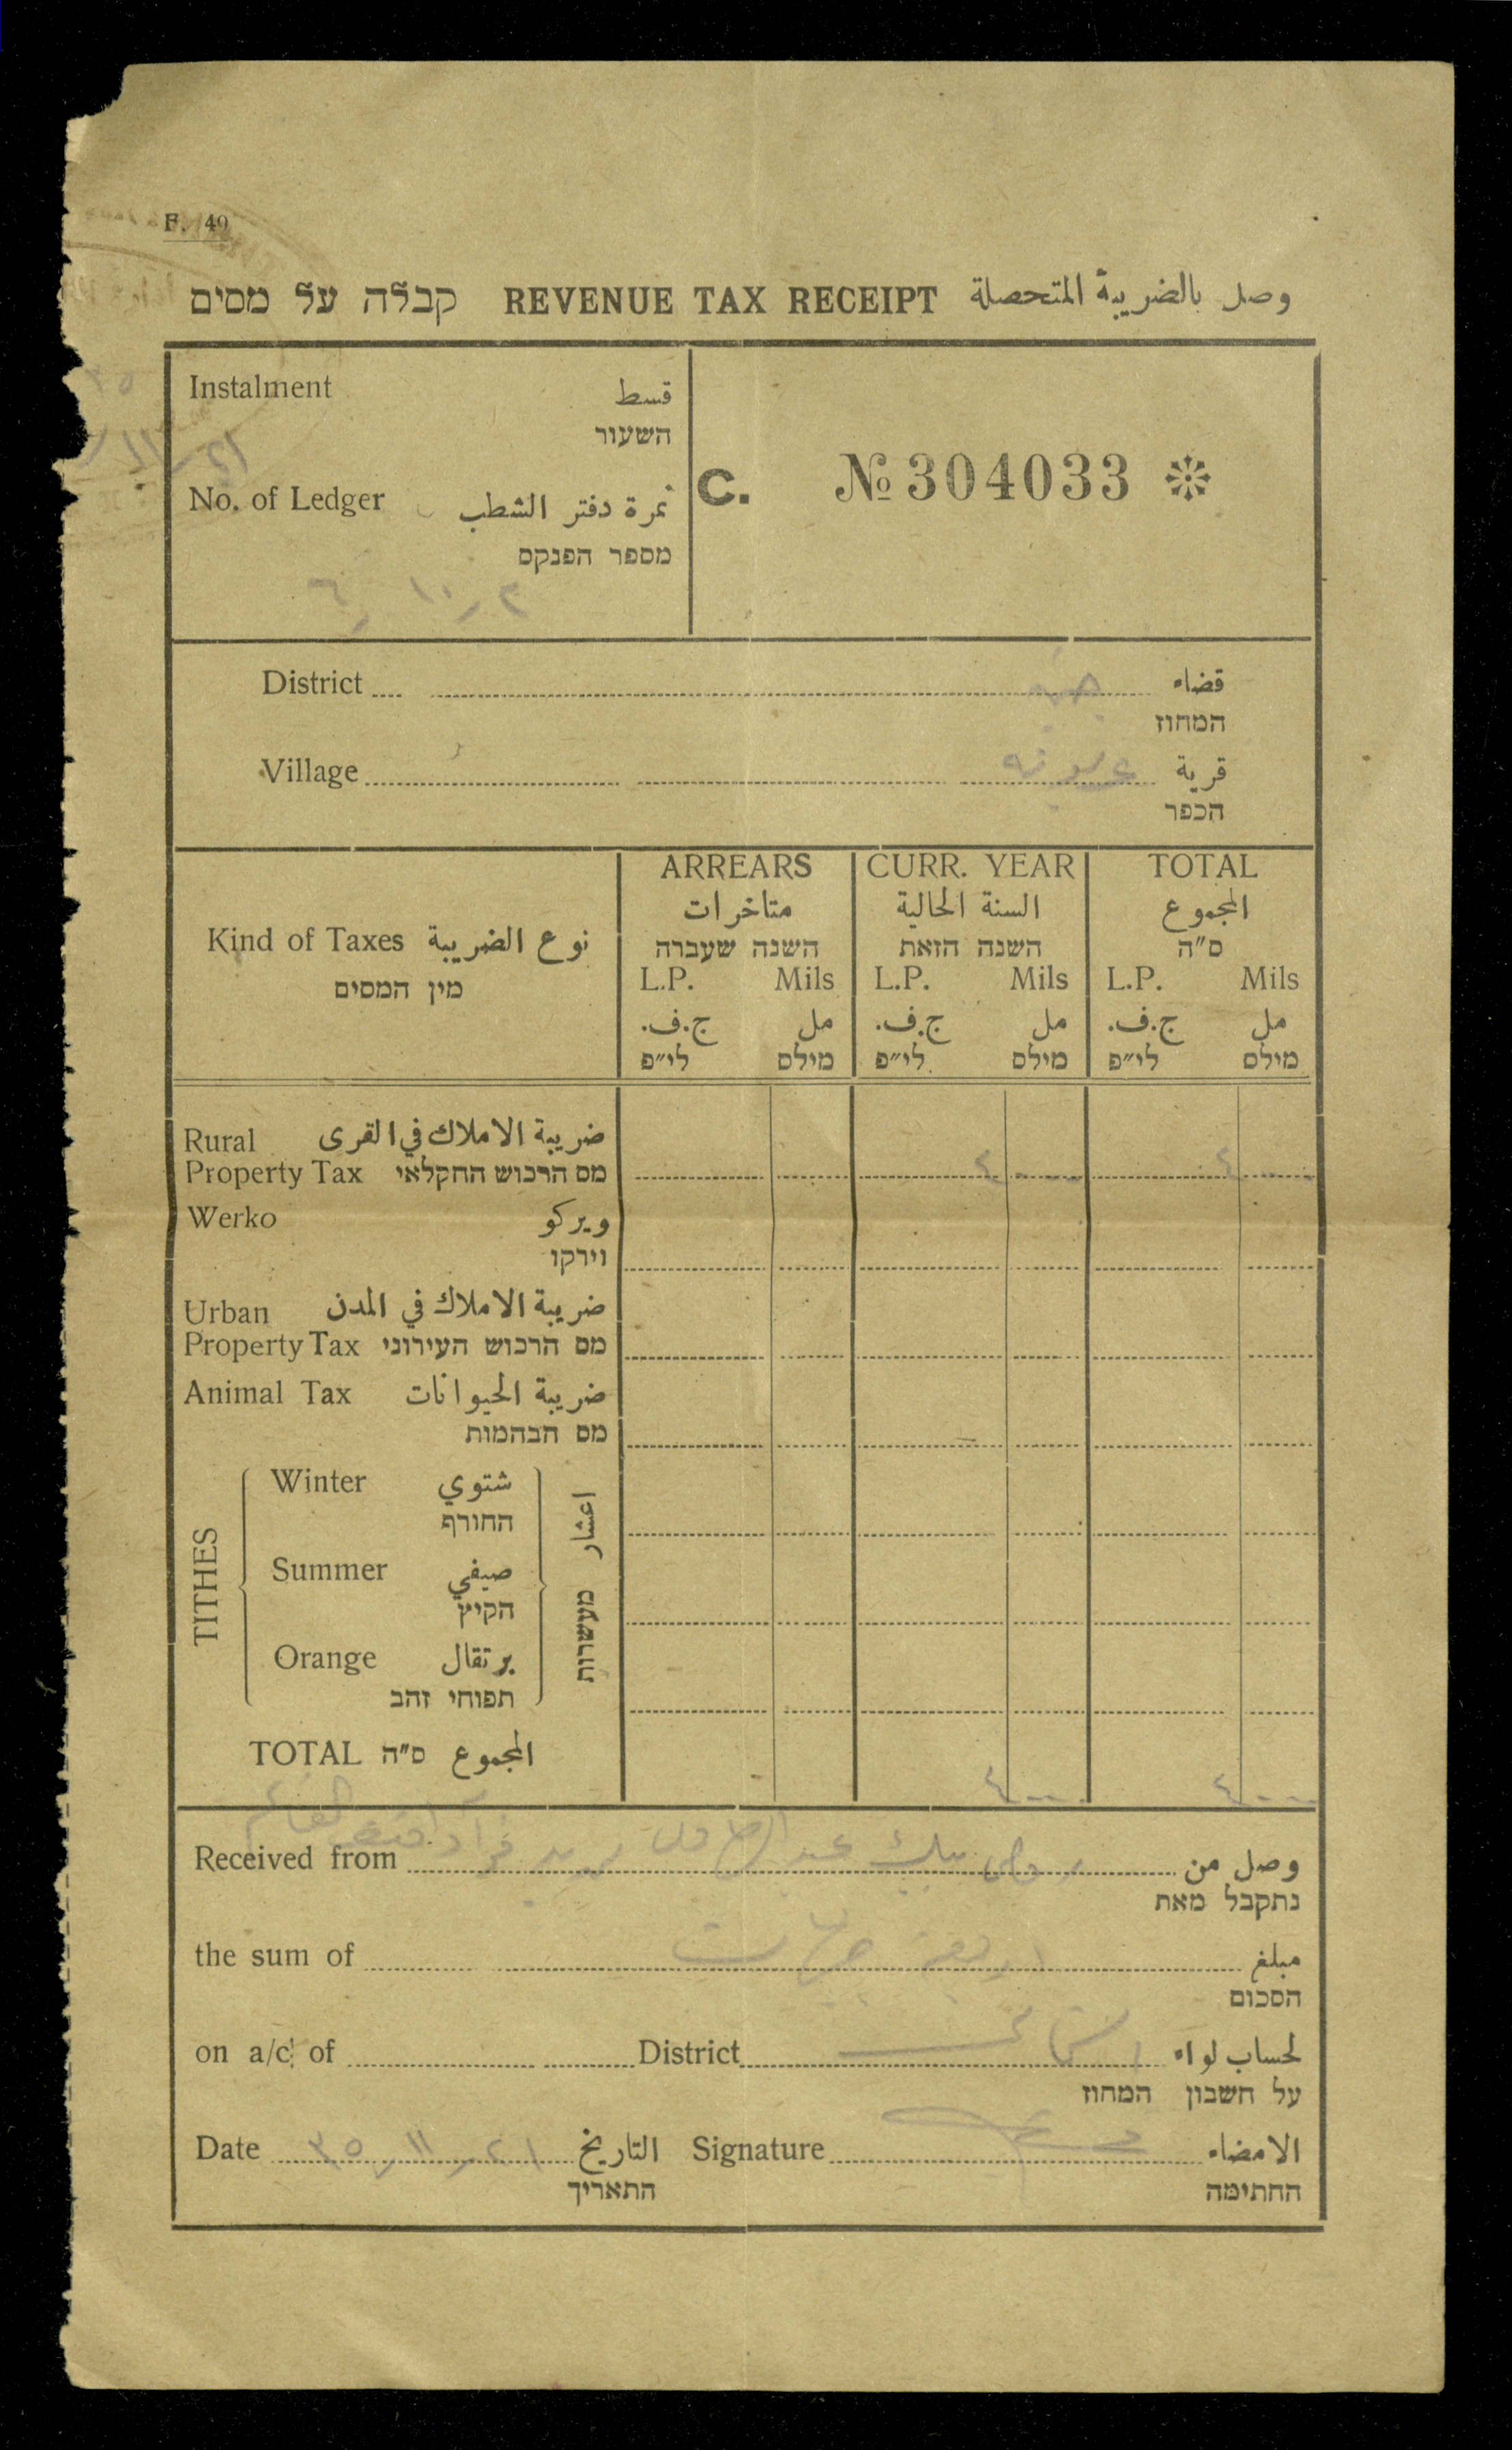 F. 40
קבלה על מסים REVENUE TAX RECEIPT وصل بالضريبة المتحصلة
Instalment قسط
השעור
No. of Ledger نمرة دفتر الشطب
מספר הפנקס
C. № 304033
District قضاء
המחוז
Village قرية
הכפר
Kind of Taxes نوع الضريبة
מין המסים
ARREARS CURR. YEAR TOTAL
متاخرات السنة الحالية المجموع
השנה שעברה השנה הזאת ס״ה
L.P. Mils L.P. Mils L.P. Mils
ج.ف. مل ج.ف. مل ج.ف. مل
לי״פ מילס לי״פ מילס לי״פ מילס
Rural ضريبة الاملاك في القرى
Property Tax מס הרכוש החקלאי ٤ ٤
Werko ويركو
וירקו
Urban ضريبة الاملاك في المدن
Property Tax מס הרכוש העירוני
Animal Tax ضريبة الحيوانات
מס הבהמות
TITHES
Winter شتوي
החורף
Summer صيفي
הקיץ
Orange برتقال
תפוחי זהב
اعشار מעשרות
TOTAL ס״ה المجموع ٤ ٤
Received from وصل من
נתקבל מאת
the sum of اربعة جنيهات مبلغ
הסכום
on a/c of District لحساب لواء
על חשבון המחוז
Date ٢١ ١١ ٣٥ التاريخ Signature الامضاء
התאריך החתימה